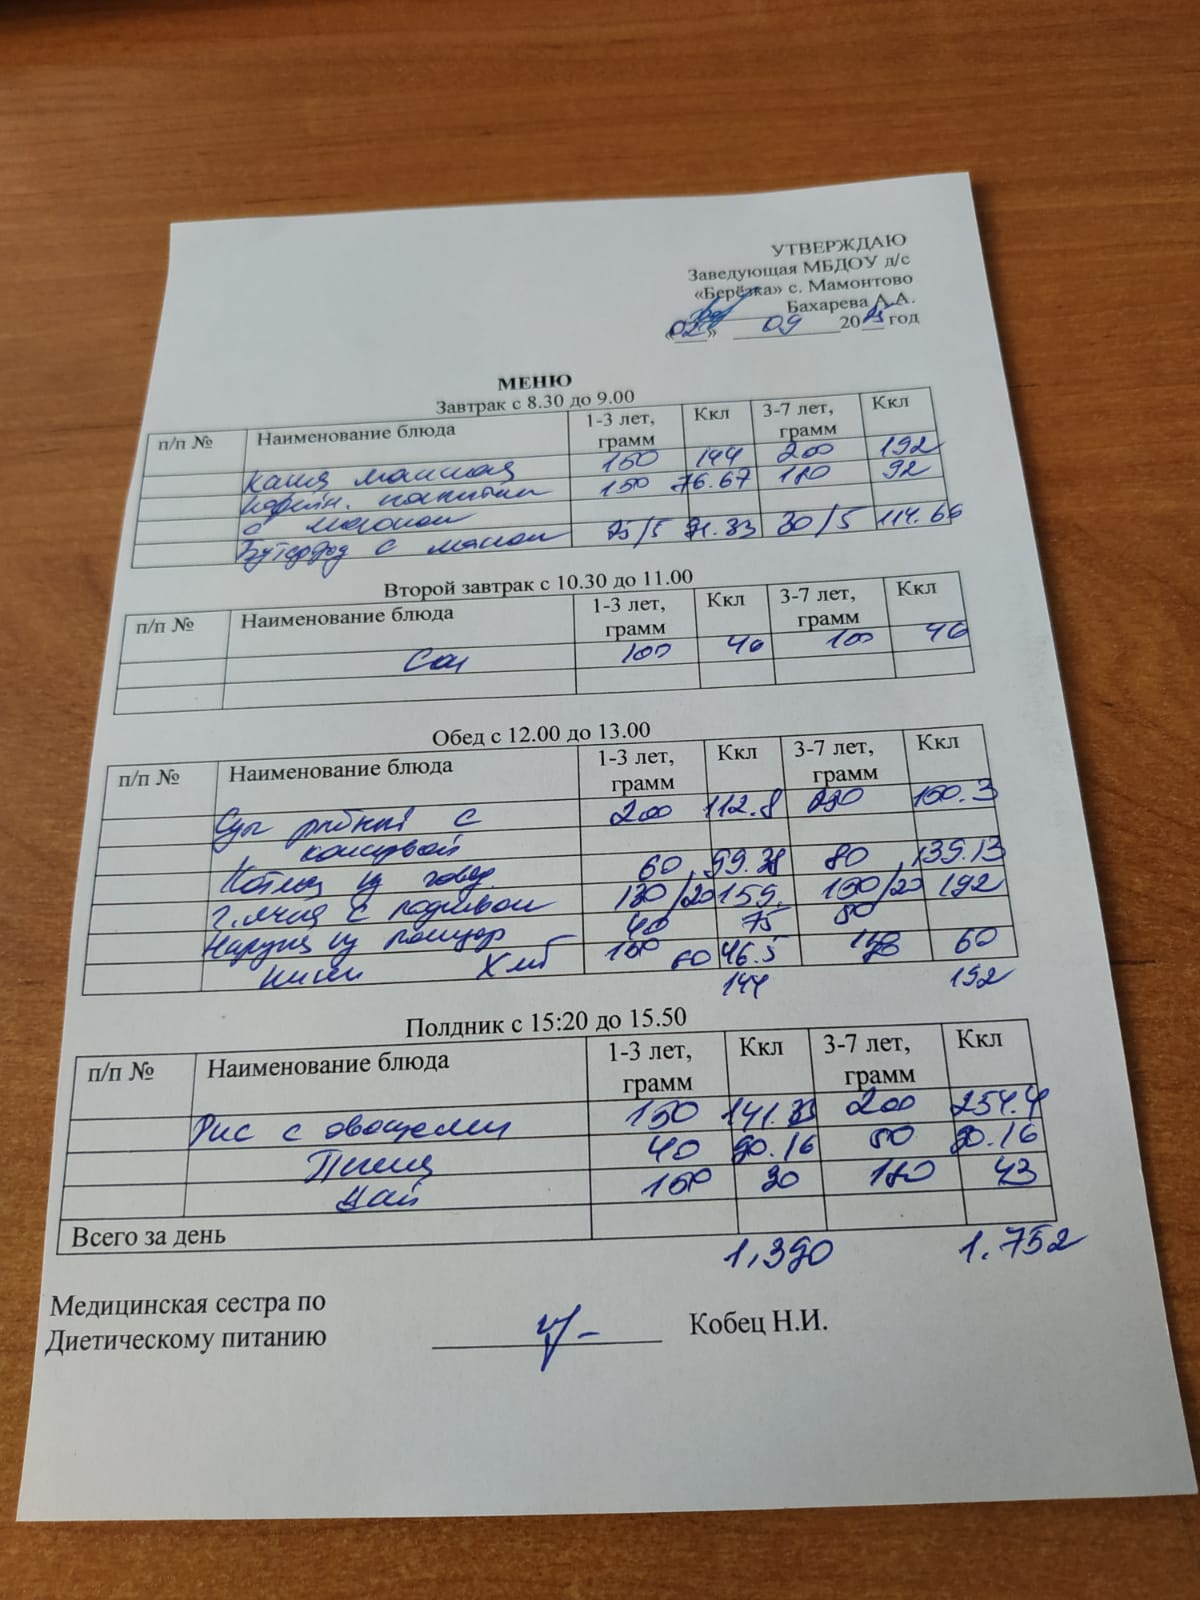 УТВЕРЖДАЮ
Заведующая МБДОУ д/с
«Берёзка» с. Мамонтово
Бахарева А.А.
«02» 09 20 год
МЕНЮ
Завтрак с 8.30 до 9.00
п/п № Наименование блюда 1-3 лет, грамм Ккл 3-7 лет, грамм Ккл
Каша манная 150 144 200 192
Кофейн. напиток 150 76.67 180 92
с молоком
Бутерброд с маслом 25/5 91.83 30/5 114.66
Второй завтрак с 10.30 до 11.00
п/п № Наименование блюда 1-3 лет, грамм Ккл 3-7 лет, грамм Ккл
Сок 100 46 100 46
Обед с 12.00 до 13.00
п/п № Наименование блюда 1-3 лет, грамм Ккл 3-7 лет, грамм Ккл
Суп рыбный с 200 112.8
60 80 139.13
с подливой 130/20 159. 150/20 192
из помидор 40 75
Хлб 60 46.5 60
144 192
Полдник с 15:20 до 15.50
п/п № Наименование блюда 1-3 лет, грамм Ккл 3-7 лет, грамм Ккл
Рис с овощами 150 200 254.4
40 90.16 90.16
Чай 150 30 180 43
Всего за день
1,390 1.752
Медицинская сестра по
Диетическому питанию Кобец Н.И.